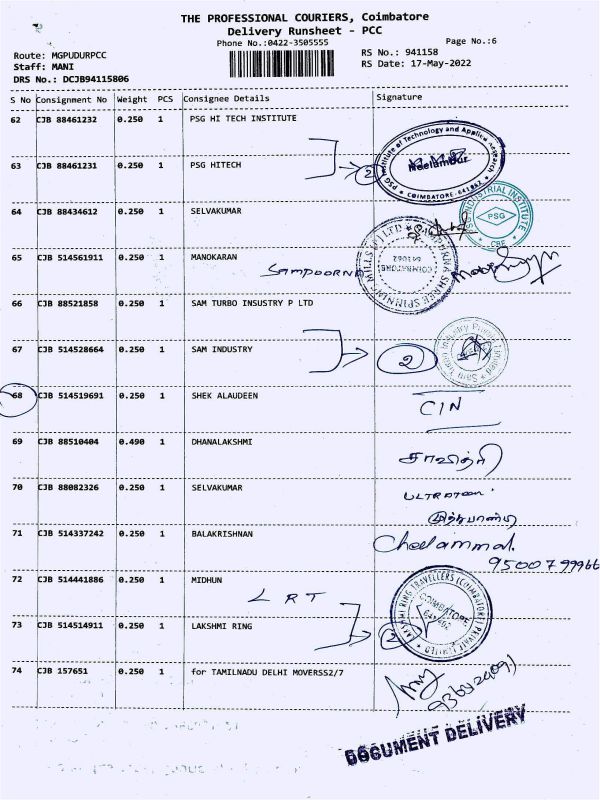 THE PROFESSIONAL COURIERS, Coimbatore
Delivery Runsheet - PCC
Phone No.:0422-3505555
Page No.:6
Route: MGPUDURPCC
RS No.: 941158
Staff: MANI
RS Date: 17-May-2022
DRS No.: DCJB94115806
S No Consignment No Weight PCS Consignee Details Signature
62 CJB 88461232 0.250 1 PSG HI TECH INSTITUTE
PSG Institute of Technology and Applied Research
Neelambur
* COIMBATORE. 641062 *
63 CJB 88461231 0.250 1 PSG HITECH
2
64 CJB 88434612 0.250 1 SELVAKUMAR
PSG INDUSTRIAL INSTITUTE
PSG
* CBE *
65 CJB 514561911 0.250 1 MANOKARAN
SAMPOORNA
COIMBATORE
641062
66 CJB 88521858 0.250 1 SAM TURBO INSUSTRY P LTD
67 CJB 514528664 0.250 1 SAM INDUSTRY
2
Sam Turbo Industry Private Limited
68 CJB 514519691 0.250 1 SHEK ALAUDEEN
CIN
69 CJB 88510404 0.490 1 DHANALAKSHMI
சாவித்ரி
70 CJB 88082326 0.250 1 SELVAKUMAR
71 CJB 514337242 0.250 1 BALAKRISHNAN
Cheelammal.
9500799966
72 CJB 514441886 0.250 1 MIDHUN
LRT
LAKSHMI RING TRAVELLERS (COIMBATORE) PRIVATE LIMITED
COIMBATORE
73 CJB 514514911 0.250 1 LAKSHMI RING
2
74 CJB 157651 0.250 1 for TAMILNADU DELHI MOVERSS2/7
DOCUMENT DELIVERY